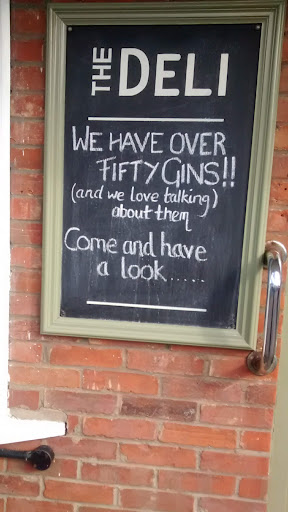 THE DELI
WE HAVE OVER
FIFTY GINS!!
(and we love talking)
about them
Come and have
a look.....